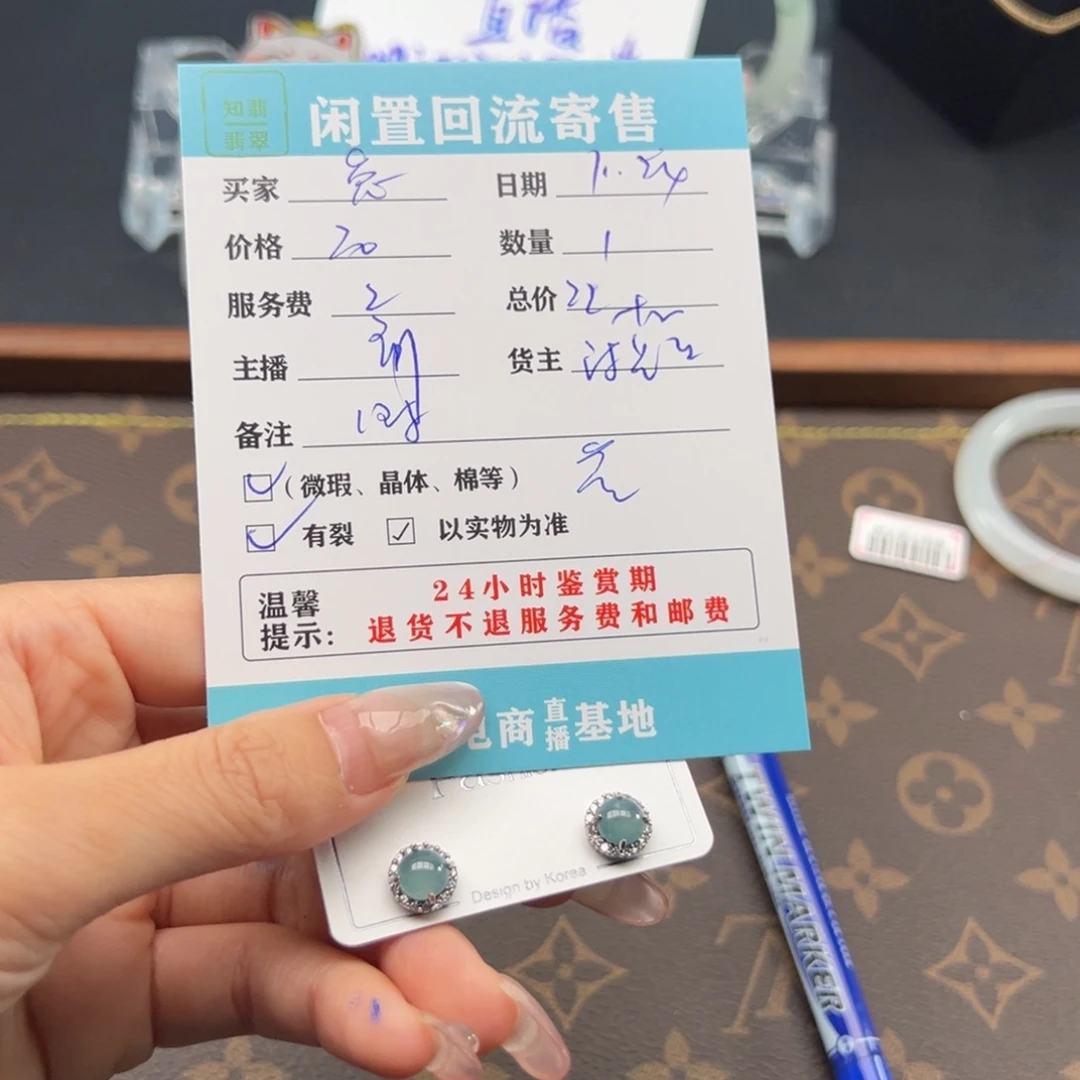 直播
知翡
翡翠
闲置回流寄售
买家 日期 11.24
价格 20 数量 1
服务费 2 总价 22
主播 货主
备注
(微瑕、晶体、棉等)
有裂 ☑ 以实物为准
温馨提示:
24小时鉴赏期
退货不退服务费和邮费
电商直播基地
Design by Korea
TWIN MARKER